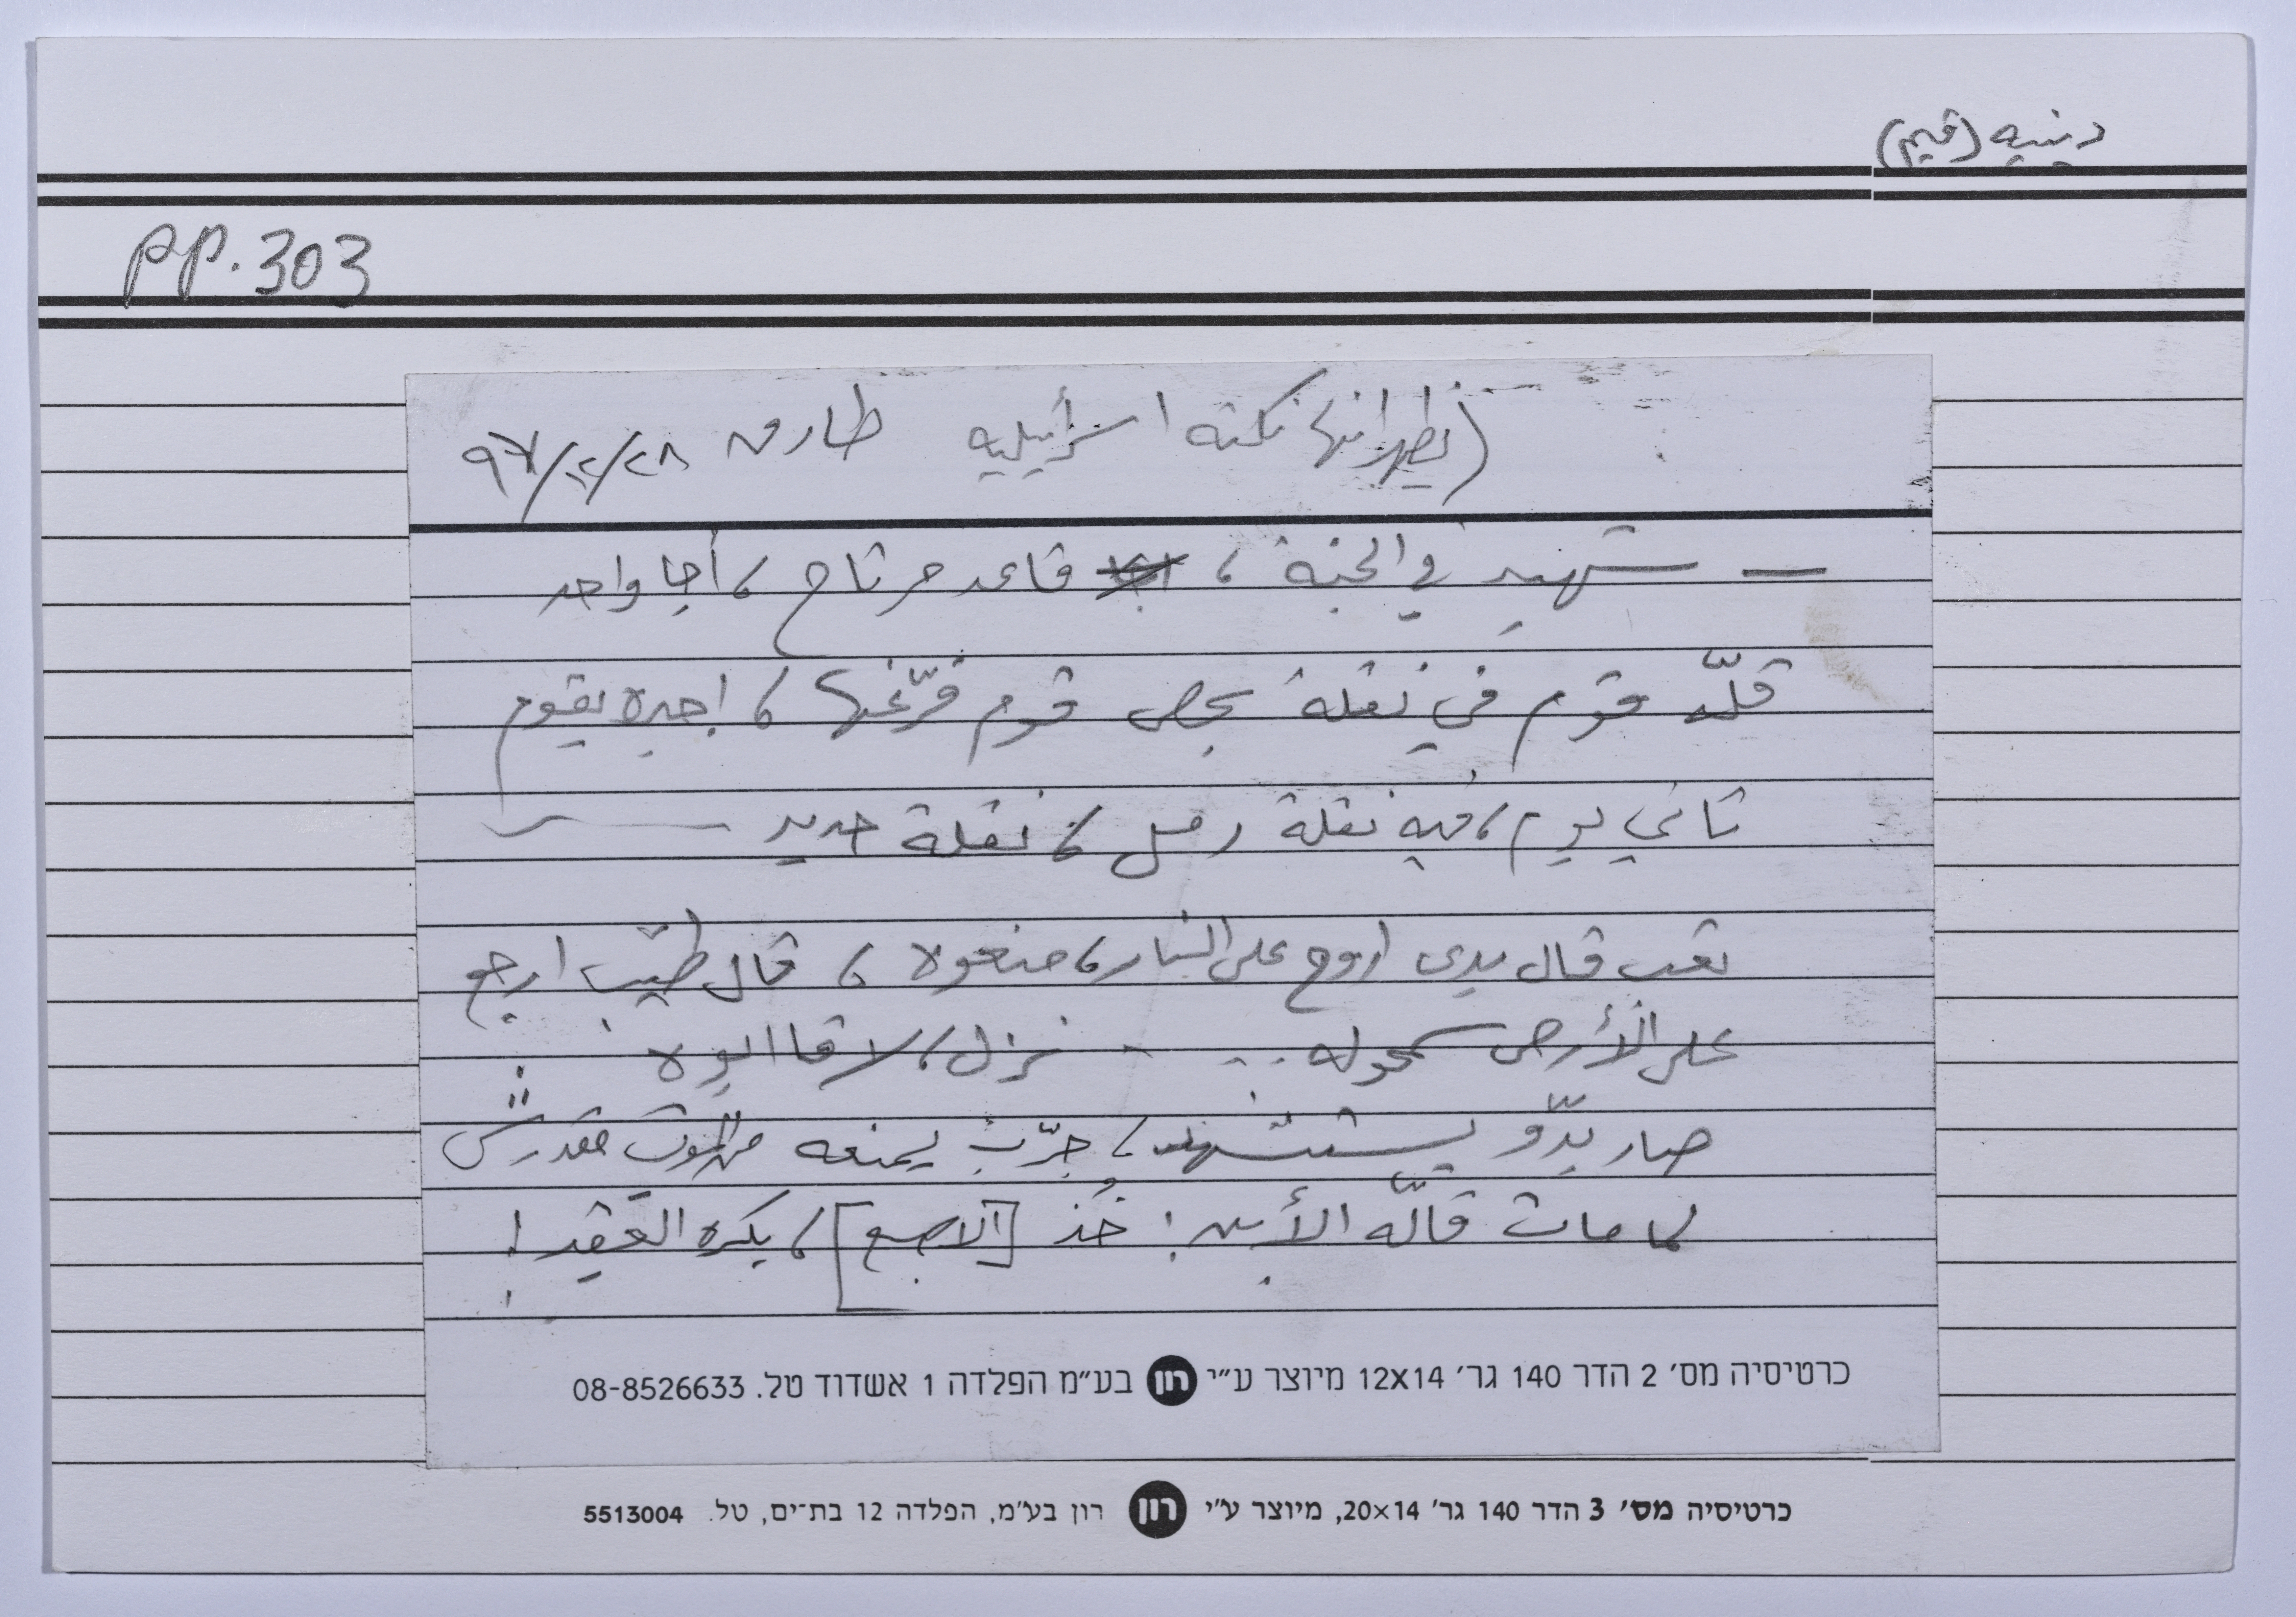 دينيه (قيم)
pp. 303
(يظهر انها نكته اسرائيليه طارق ٢٨/١٢/٩٧
— شهيد في الجنة ، قاعد مرتاح ، أجا واحد
قلّه قوم في نقلة بحص قوم فرّغها ، اجبره يقوم
تاني يوم ، فيه نقلة رمل ، نقلة حديد
تعب قال بدي اروح على النار ، منعوه ، قال طيّب ارجع
على الأرض سمحوله .. نزل ، لاقا ابوه
صار بدّو يستشهد ، جرّب يمنعه من الموت مقدرش
لما مات قالّه الأب : خُذ [الاصبع] ، بكره العَقِد !
כרטיסיה מס׳ 2 הדר 140 גר׳ 12X14 מיוצר ע״י רון בע״מ הפלדה 1 אשדוד טל. 08-8526633
כרטיסיה מס׳ 3 הדר 140 גר׳ 20×14, מיוצר ע״י רון רון בע״מ, הפלדה 12 בת־ים, טל. 5513004